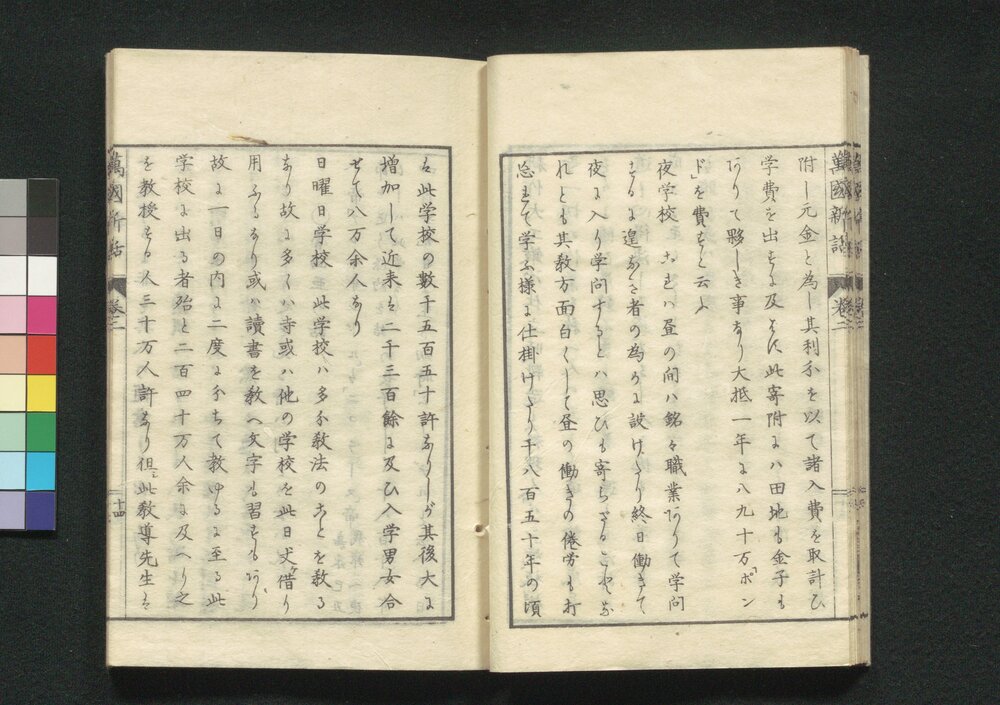 萬國新話 卷二
附し元金と為し其利分を以て諸入費を取計ひ
学費を出すに及はず此寄附には田地も金子も
ありて夥しき事なり大抵一年に八九十万「ポン
ド」を費すと云ふ
夜学校 これは昼の間は銘々職業ありて学問
するに遑なき者の為めに設けたり終日働きて
夜に入り学問するとは思ひも寄らざることなれ
れとも其教方面白くして昼の働きの倦労も打
忘れて学ぶ様に仕掛けたり千八百五十年の頃
は此学校の数千五百五十許なりしが其後大に
増加して近来は二千三百餘に及ひ入学男女合
せて八万余人なり
日曜日学校 此学校は多分教法のことを教る
なり故に多くは寺或は他の学校を此日丈借り
用ふるなり或は讀書を教へ文字も習すもあり
故に一日の内に二度に分ちて教ゆるに至る此
学校に出る者殆と二百四十万人余に及へり之
を教授する人三十万人許なり但し此教導先生は
萬國新話 卷二 十四